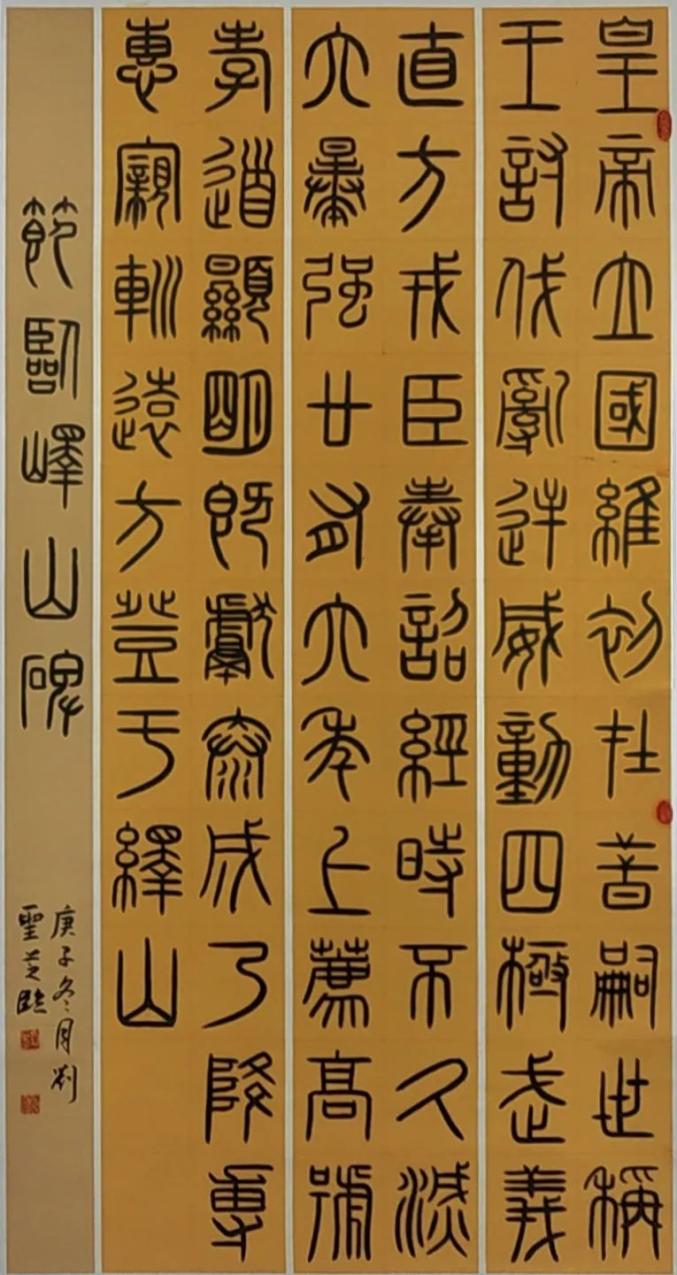 皇帝立國維初在昔嗣世稱
王討伐亂逆威動四極武義
直方戎臣奉詔經時不久滅
六暴強廿有六年上薦高號
孝道顯明既獻泰成乃降尃
惠寴䡅遠方登于繹山
節臨嶧山碑
庚子冬月劉
聖芝臨